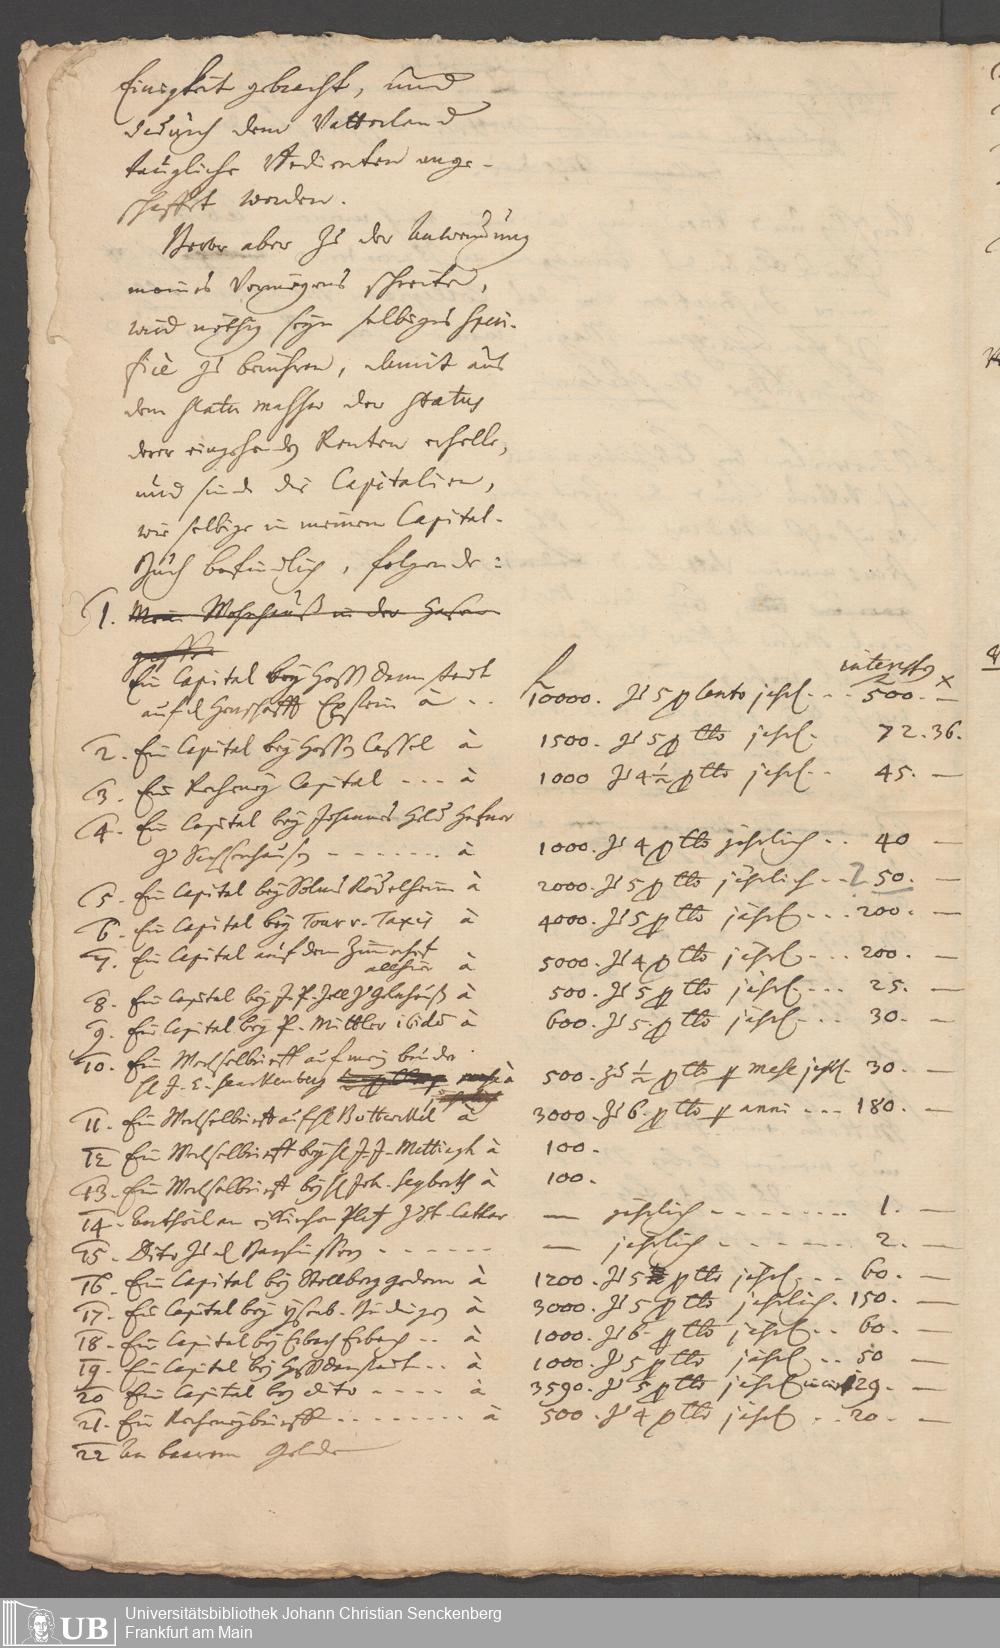 Einigkeit gebracht, und
dadurch dem Vatterland
taugliche Bedienten ange-
schafft werden.
Bevor aber zu der Anwendung
meines Vermögens schreite,
wird nöthig seyn selbiges speci-
fice zu berühren, damit aus
dem statu massae der status
derer eingehenden Renten erhelle,
und sind die Capitalien,
wie selbige in meinem Capital-
Buch befindlich, folgende:
1. Mein Wohnhauß in der Hasen
gasse
interessen
Ein Capital bey Hessen Darmstadt
auf d Herrschafft Epstein à - - 10000. zu 5 p Cento jährl. - - 500. —
2. Ein Capital bey Hessen Cassel à 1500. zu 5 p Cto jährl. 72.36.
3. Ein Recheney Capital - - - à 1000 zu 4 1/2 p Cto jährl. - 45. —
4. Ein Capital bey Johannes Held Hafner
zu Sachsenhausen - - - - - - - à 1000. zu 4 p Cto jährlich - - 40 —
5. Ein Capital bey Solms Rödelheim à 2000. zu 5 p Cto jährlich - - 50. —
6. Ein Capital bey Tour v. Taxis à 4000. zu 5 p Cto jährl. - - - 200. —
7. Ein Capital auf dem
allhier à 5000. zu 4 p Cto jährl. - - - 200. —
8. Ein Capital bey J. P. zu Gelnhauß à 500. zu 5 p Cto jährl. - - - 25. —
9. Ein Capital bey P. Müttler ibidem à 600. zu 5. p Cto jährl. - - - 30. —
10. Ein Wechselbrieff auf mein bruder
H J. E. Senckenberg à 500. zu 1/2 p Cto p mese jährl. 30. —
11. Ein Wechselbrieff auf H à 3000. zu 6. p Cto p anni - - - 180. —
12 Ein Wechselbrieff bey H J. J. Mettingh à 100.
13. Ein Wechselbrieff bey H Joh. Seyberth à 100.
14. Antheil an Kirchen Platz zu St. Cathar — jährlich - - - - - - - - 1. —
15. Dito zu d Barfüssern - - - - - - — jährlich - - - - - - 2. —
16. Ein Capital bey Stollberg gedern à 1200. zu 5 p Cto jährl. - - 60. —
17. Ein Capital bey Ysenb. Büdingen à 3000. zu 5 p Cto jährlich. 150. —
18. Ein Capital bey Erbach Erbach - - à 1000. zu 6. p Cto jährl. - - 60. —
19. Ein Capital bey Hessdarmstadt - - à 1000. zu 5 p Cto jährl. - - 50 —
20 Ein Capital bey dito - - - - à 3590. zu 5 p Cto jährl 129. —
21. Ein Recheneybrieff - - - - - - - - à 500. zu 4 p Cto jährl. - - 20. —
22 An baarem Gelde
UB
Universitätsbibliothek Johann Christian Senckenberg
Frankfurt am Main